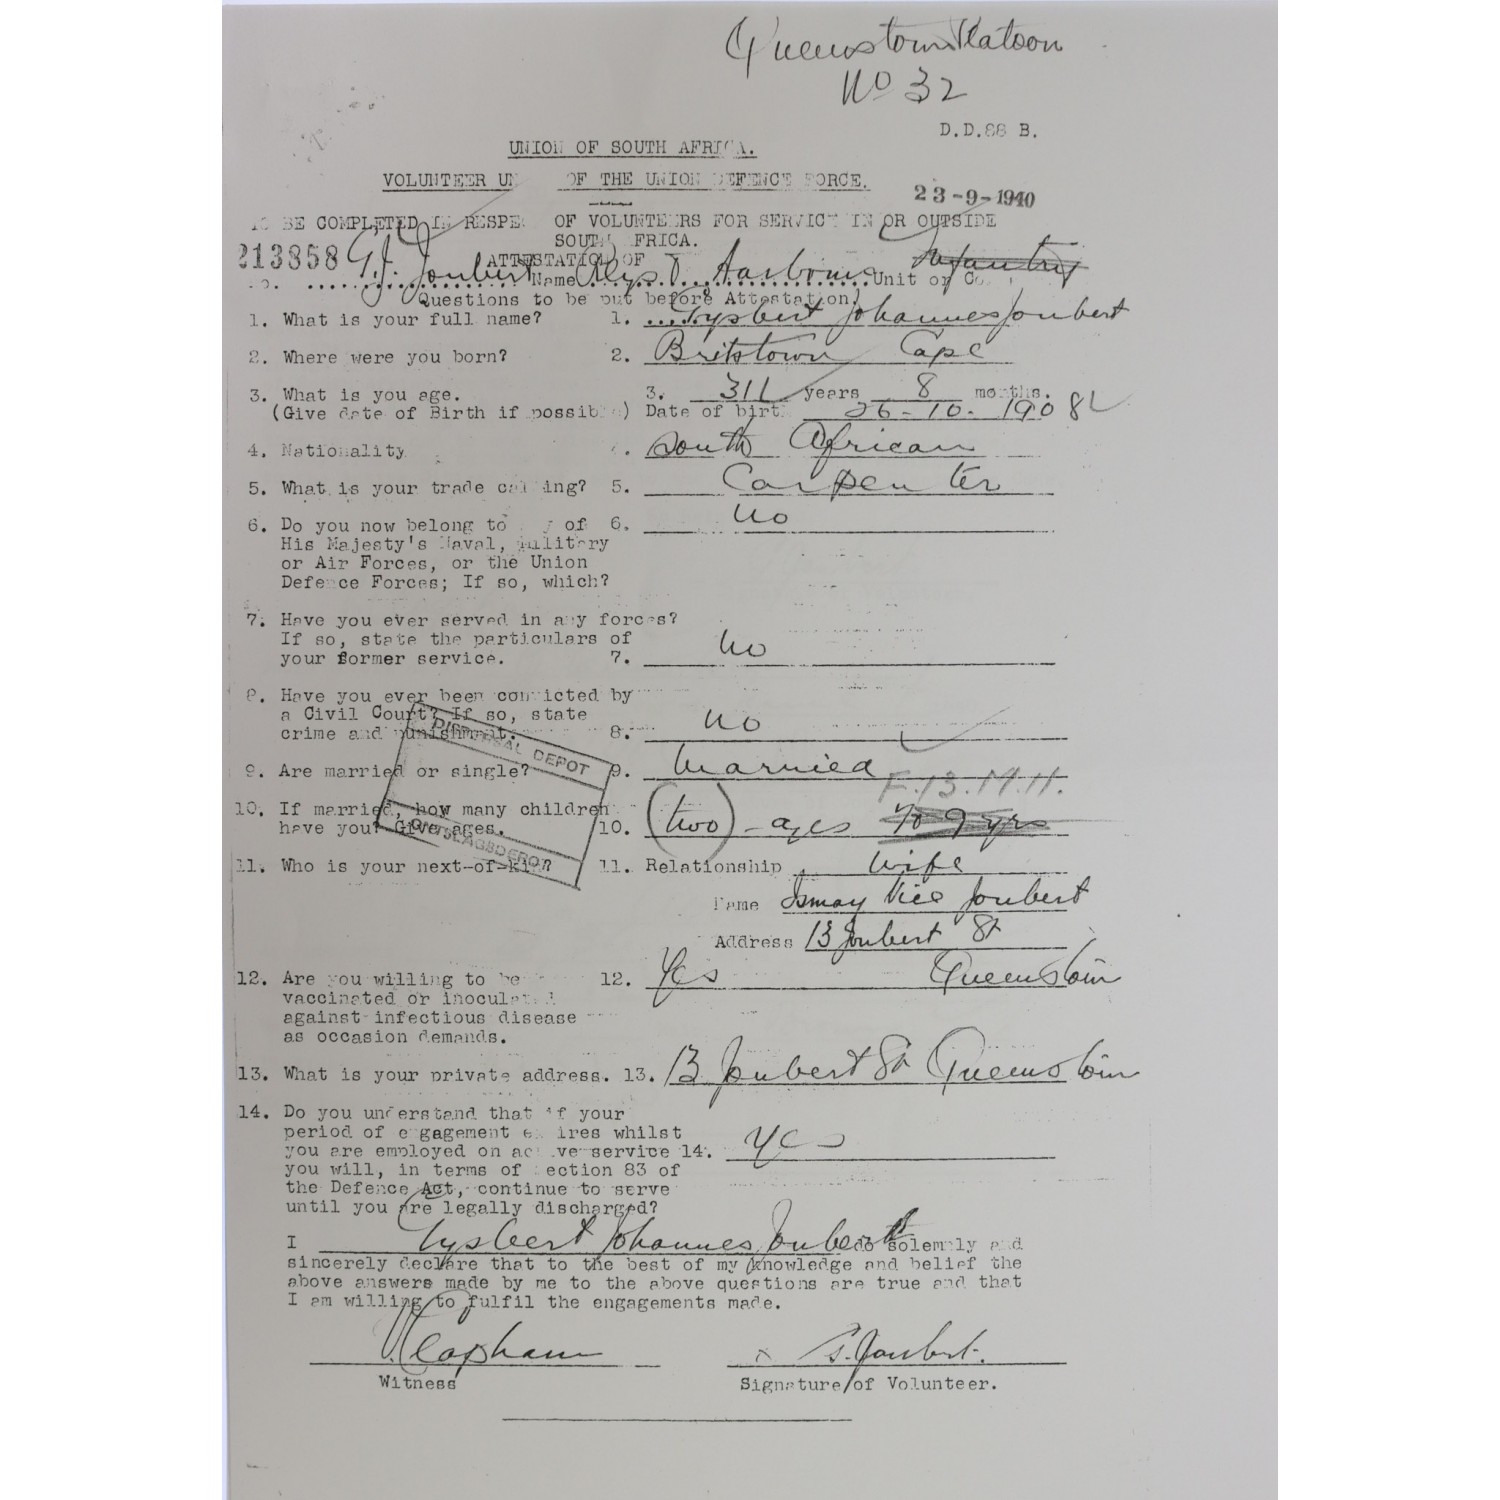 Queenstown Platoon
No 32
D.D.88 B.
UNION OF SOUTH AFRICA.
VOLUNTEER UN OF THE UNION DEFENCE FORCE.
23-9-1940
TO BE COMPLETED IN RESPEC OF VOLUNTEERS FOR SERVICE IN OR OUTSIDE
SOUTH AFRICA.
213858 G.J. Joubert ATTESTATION OF Infantry
Name Unit or Co
Questions to be put before Attestation.
1. What is your full name? 1. Gysbert Johannes Joubert
2. Where were you born? 2. Britstown Cape
3. What is you age. 3. 31 years 8 months.
(Give date of Birth if possible) Date of birth 26-10-1908
4. Nationality South African
5. What is your trade calling? 5. Carpenter
6. Do you now belong to of 6. No
His Majesty's Naval, Military
or Air Forces, or the Union
Defence Forces; If so, which?
7. Have you ever served in any forces?
If so, state the particulars of
your former service. 7. No
8. Have you ever been convicted by
a Civil Court? If so, state
crime and punishment. 8. No
DISPERSAL DEPOT
9. Are married or single? 9. Married
F.13.M.11.
10. If married, how many children
have you? Give ages. 10. (two) - ages 9 yrs
ONTSLAGSDEPOT
11. Who is your next-of-kin? 11. Relationship wife
Name Ismay Vice Joubert
Address 13 Joubert St
12. Are you willing to be 12. Yes Queenstown
vaccinated or inoculated
against infectious disease
as occasion demands.
13. What is your private address. 13. 13 Joubert St Queenstown
14. Do you understand that if your
period of engagement expires whilst
you are employed on active service 14. Yes
you will, in terms of Section 83 of
the Defence Act, continue to serve
until you are legally discharged?
I Gysbert Johannes Joubert do solemnly and
sincerely declare that to the best of my knowledge and belief the
above answers made by me to the above questions are true and that
I am willing to fulfil the engagements made.
Clapham x G. Joubert.
Witness Signature of Volunteer.